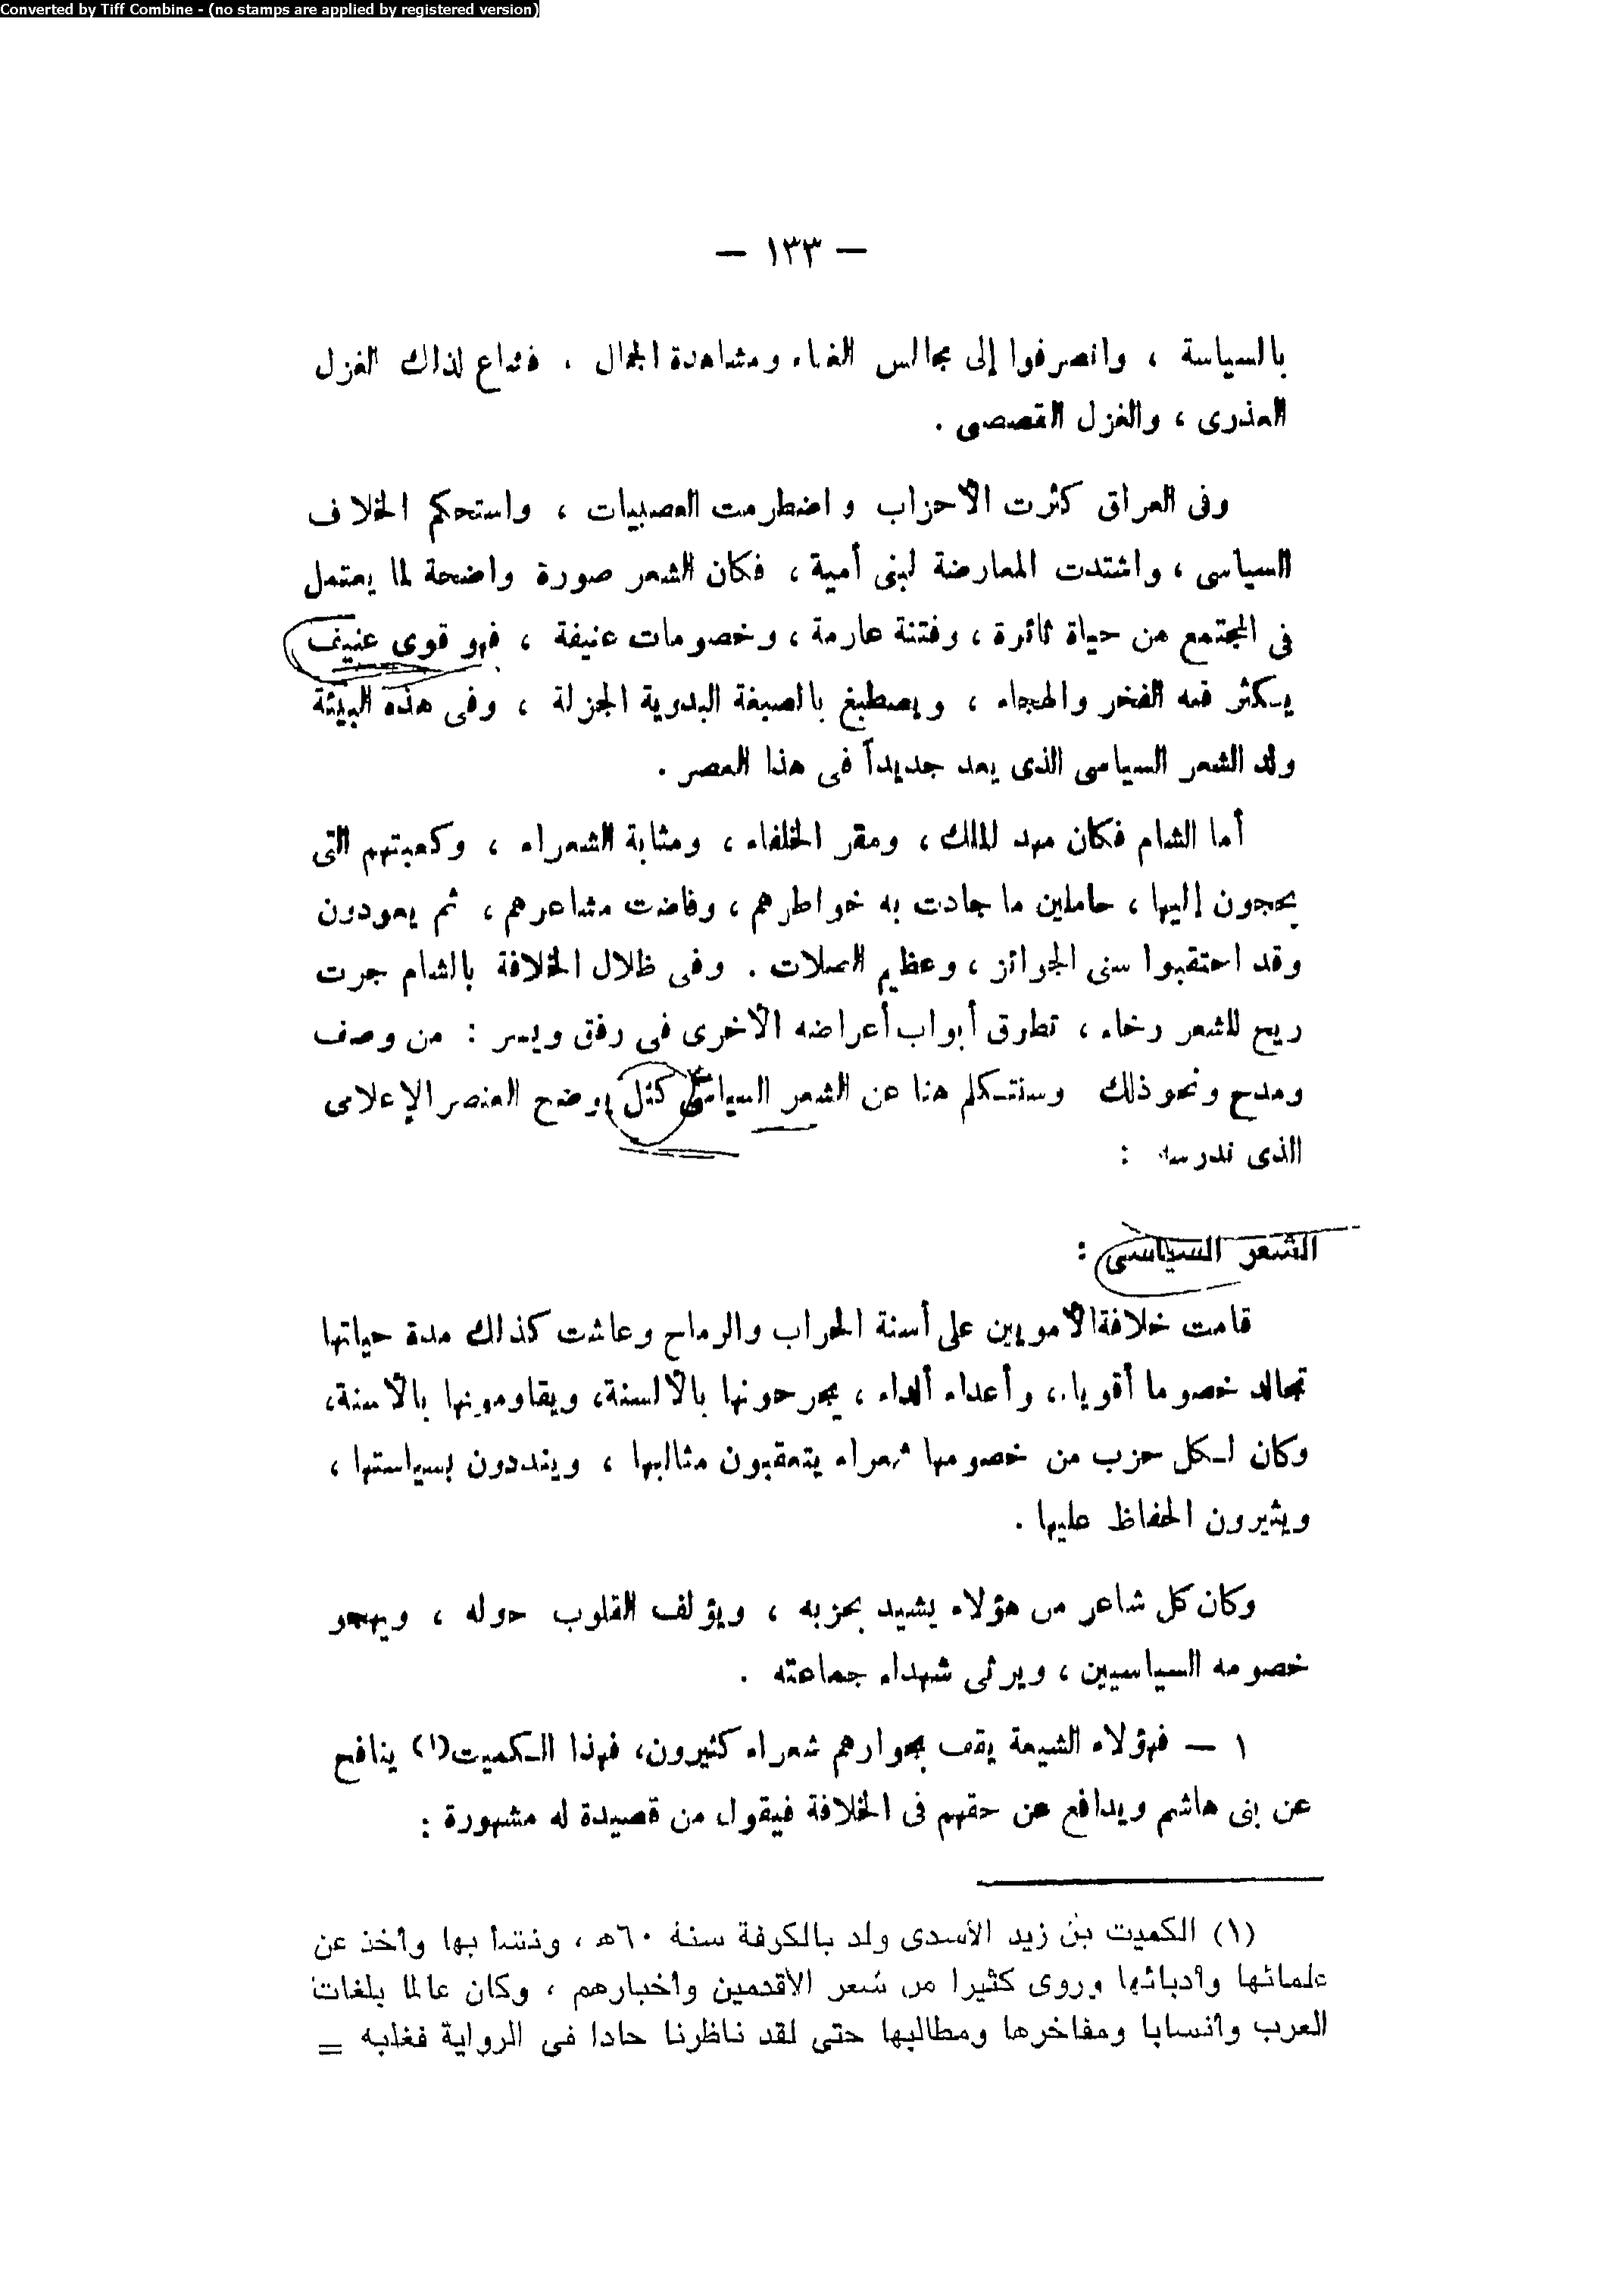 Converted by Tiff Combine - (no stamps are applied by registered version)
— ١٣٣ —
بالسياسة ، وانصرفوا إلى مجالس الغناء ومشاهدة الجمال . فشاع لذلك الغزل
العذرى ، والغزل القصصى .
وفى العراق كثرت الأحزاب واضطرمت العصبيات ، واستحكم الخلاف
السياسى ، واشتدت المعارضة لبنى أمية ، فكان الشعر صورة واضحة لما يعتمل
فى المجتمع من حياة ثائرة ، وفتنة عارمة ، وخصومات عنيفة ، فهو قوى عنيف
يكثر فيه الفخر والهجاء ، ويصطبغ بالصبغة البدوية الجزلة ، وفى هذه البيئة
ولد الشعر السياسى الذى يعد جديداً فى هذا العصر .
أما الشام فكان مهد للملك ، ومقر الخلفاء ، ومثابة الشعراء ، وكعبتهم التى
يحجون إليها ، حاملين ما جادت به خواطرهم ، وفاضت مشاعرهم ، ثم يعودون
وقد احتقبوا سنى الجوائز ، وعظيم الصلات . وفى ظلال الخلافة بالشام جرت
ريح للشعر رخاء ، تطرق أبواب أعراضه الأخرى فى رفق ويسر : من وصف
ومدح ونحو ذلك وسنتكلم هنا عن الشعر السياسى كمثل يوضح العنصر الإعلامى
الذى ندرسه :
الشعر السياسى :
قامت خلافة الأمويين على أسنة الحراب والرماح وعاشت كذلك مدة حياتها
تجالد خصوما أقوياء ، وأعداء ألداء ، يجرحونها بالألسنة، ويقاومونها بالأسنة،
وكان لكل حزب من خصومها شعراء يتعقبون مثالبها ، وينددون بسياستها ،
ويثيرون الحفاظ عليها .
وكان كل شاعر من هؤلاء يشيد بحزبه ، ويؤلف القلوب حوله ، ويهجو
خصومه السياسيين ، ويرثى شهداء جماعته .
١ — فهؤلاء الشيعة يقف بجوارهم شعراء كثيرون، فهذا الكميت(١) ينافح
عن بنى هاشم ويدافع عن حقهم فى الخلافة فيقول من قصيدة له مشهورة :
(١) الكميت بن زيد الأسدى ولد بالكوفة سنة ٦٠هـ ، ونشأ بها وأخذ عن
علمائها وأدبائها وروى كثيرا من شعر الأقدمين وأخبارهم ، وكان عالما بلغات
العرب وأنسابا ومفاخرها ومطالبها حتى لقد ناظرنا حادا فى الرواية فغلبه =